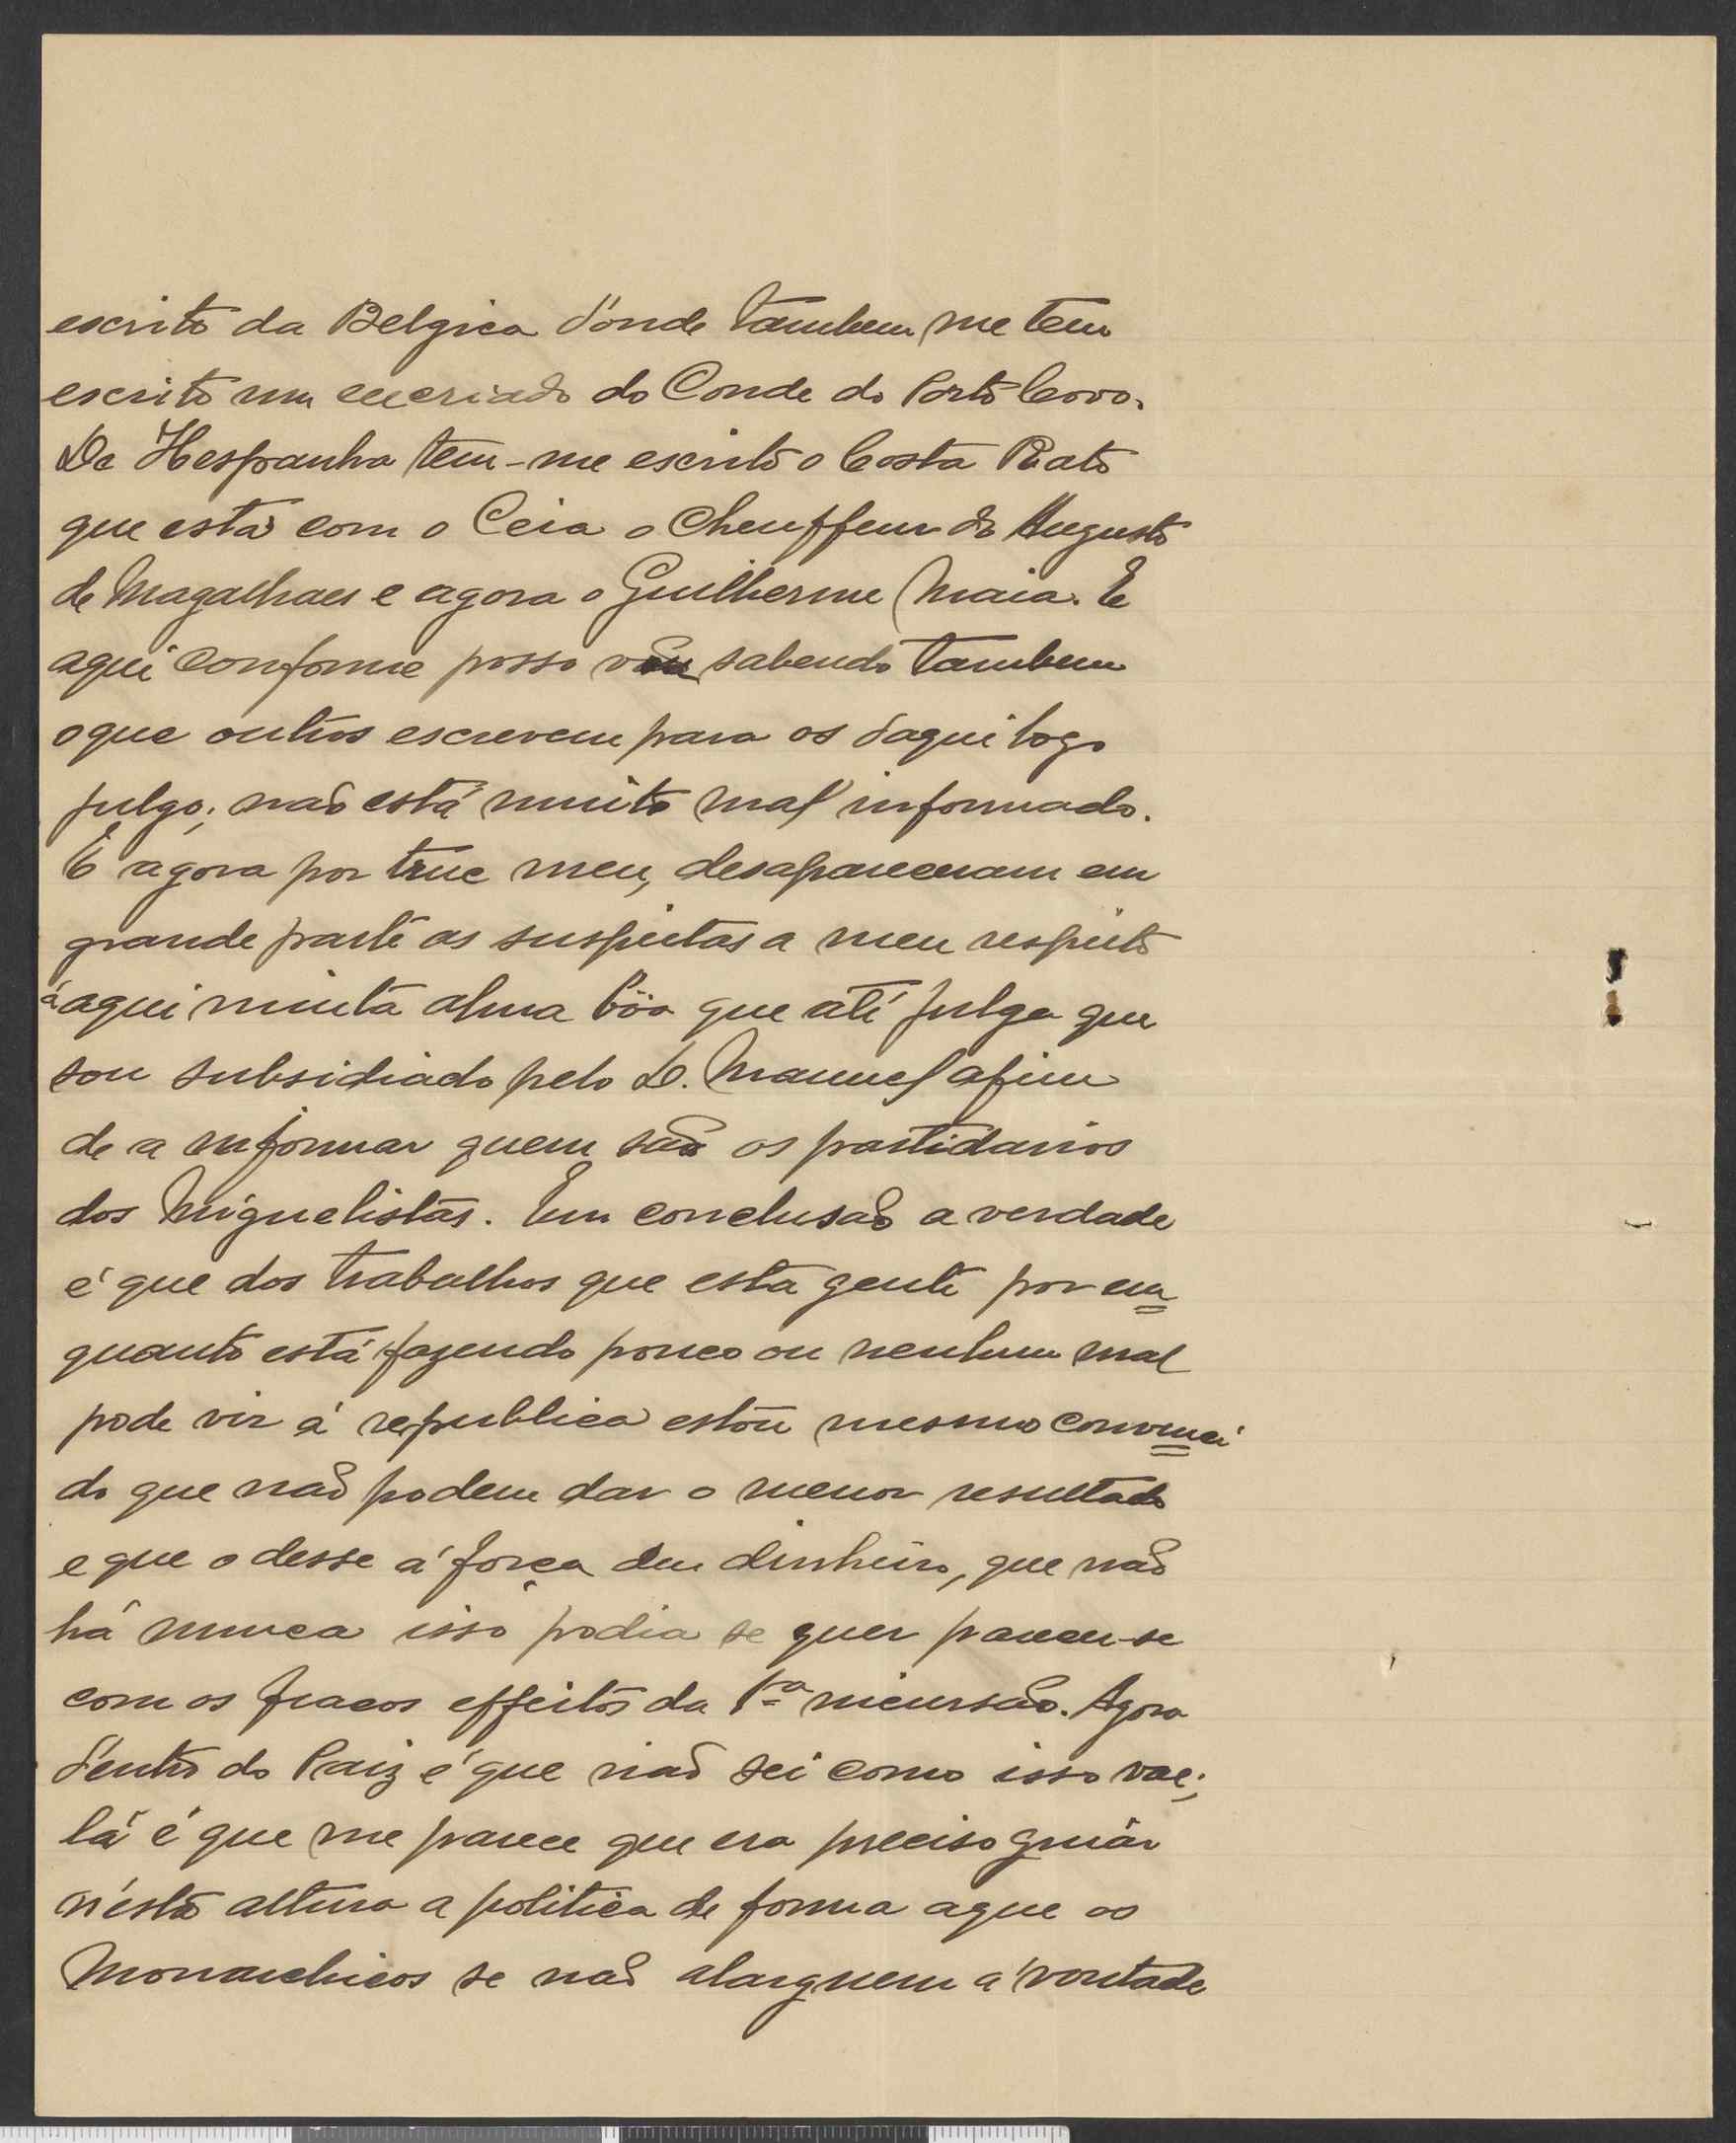 escrito da Belgica d'onde tambem me tem
escrito um excriado do Conde do Porto Covo.
De Hespanha tem-me escrito o Costa Rato
que está com o Ceia o Cheuffeur do Augusto
de Magalhaes e agora o Guilherme Maia. E
aqui conforme posso vou sabendo tambem
o que outros escrevem para os daqui logo
julgo; não está muito mal informado.
E agora por truc meu, desapareceram em
grande parte as suspeitas a meu respeito
á aqui muita alma bôa que até julga que
sou subsidiado pelo D. Manuel afim
de a informar quem são os partidarios
dos Miguelistas. Em conclusão a verdade
é que dos trabalhos que esta gente por em=
quanto está fazendo pouco ou nenhum mal
pode vir á republica estou mesmo convenci=
do que não podem dar o menor resultado
e que o desse á força de dinheiro, que não
há nunca isso podia se quer parecer-se
com os fracos effeitos da 1ª incursão. Agora
d'entro do Paiz é que não sei como isso vae;
lá é que me parece que era preciso guiár
n'esta altura a politica de forma a que os
Monarchicos se não alarguem á vontade